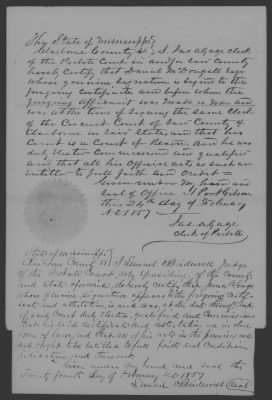 The State of Mississippi
Claiborne County Ss. I, Jas. Gage clerk
of the Probate Court in and for said County
hereby Certify that Daniel McDougall Esqr
whose genuine signature is signed to the
foregoing Certificate and before whom the
foregoing Affidavit was made is now and
was at the time of signing the same Clerk
of the Circuit Court of said County of
Claiborne in said State, and that his
Court is a Court of Record. And he was
duly elected Commissioned and qualified
and that all his Official acts as such are
entitled to full faith and Credit
Given under my hand and
seal of Office at Port Gibson
this 24th day of February
AD 1857
Jas. Gage
Clerk of Probate
State of Mississippi
Claiborne County Ss I Limuel C Bridewell Judge
of the Probate Court, sole presiding, of the County
and State aforesaid, do hereby certify that James A Gage
whose genuine signature appears to the foregoing Certificate
and attestation, is and was, at the date thereof, Clerk
of said Court duly elected, qualified and Commissioned
that his said Certificate and attestation are in due
form of law, and that all of his acts in the premises are
and ought to be entitled to full faith and Credit in
judicature and thereout.
Given under my hand and seal this
Twenty fourth day of February AD 1857
Limuel C Bridewell Seal